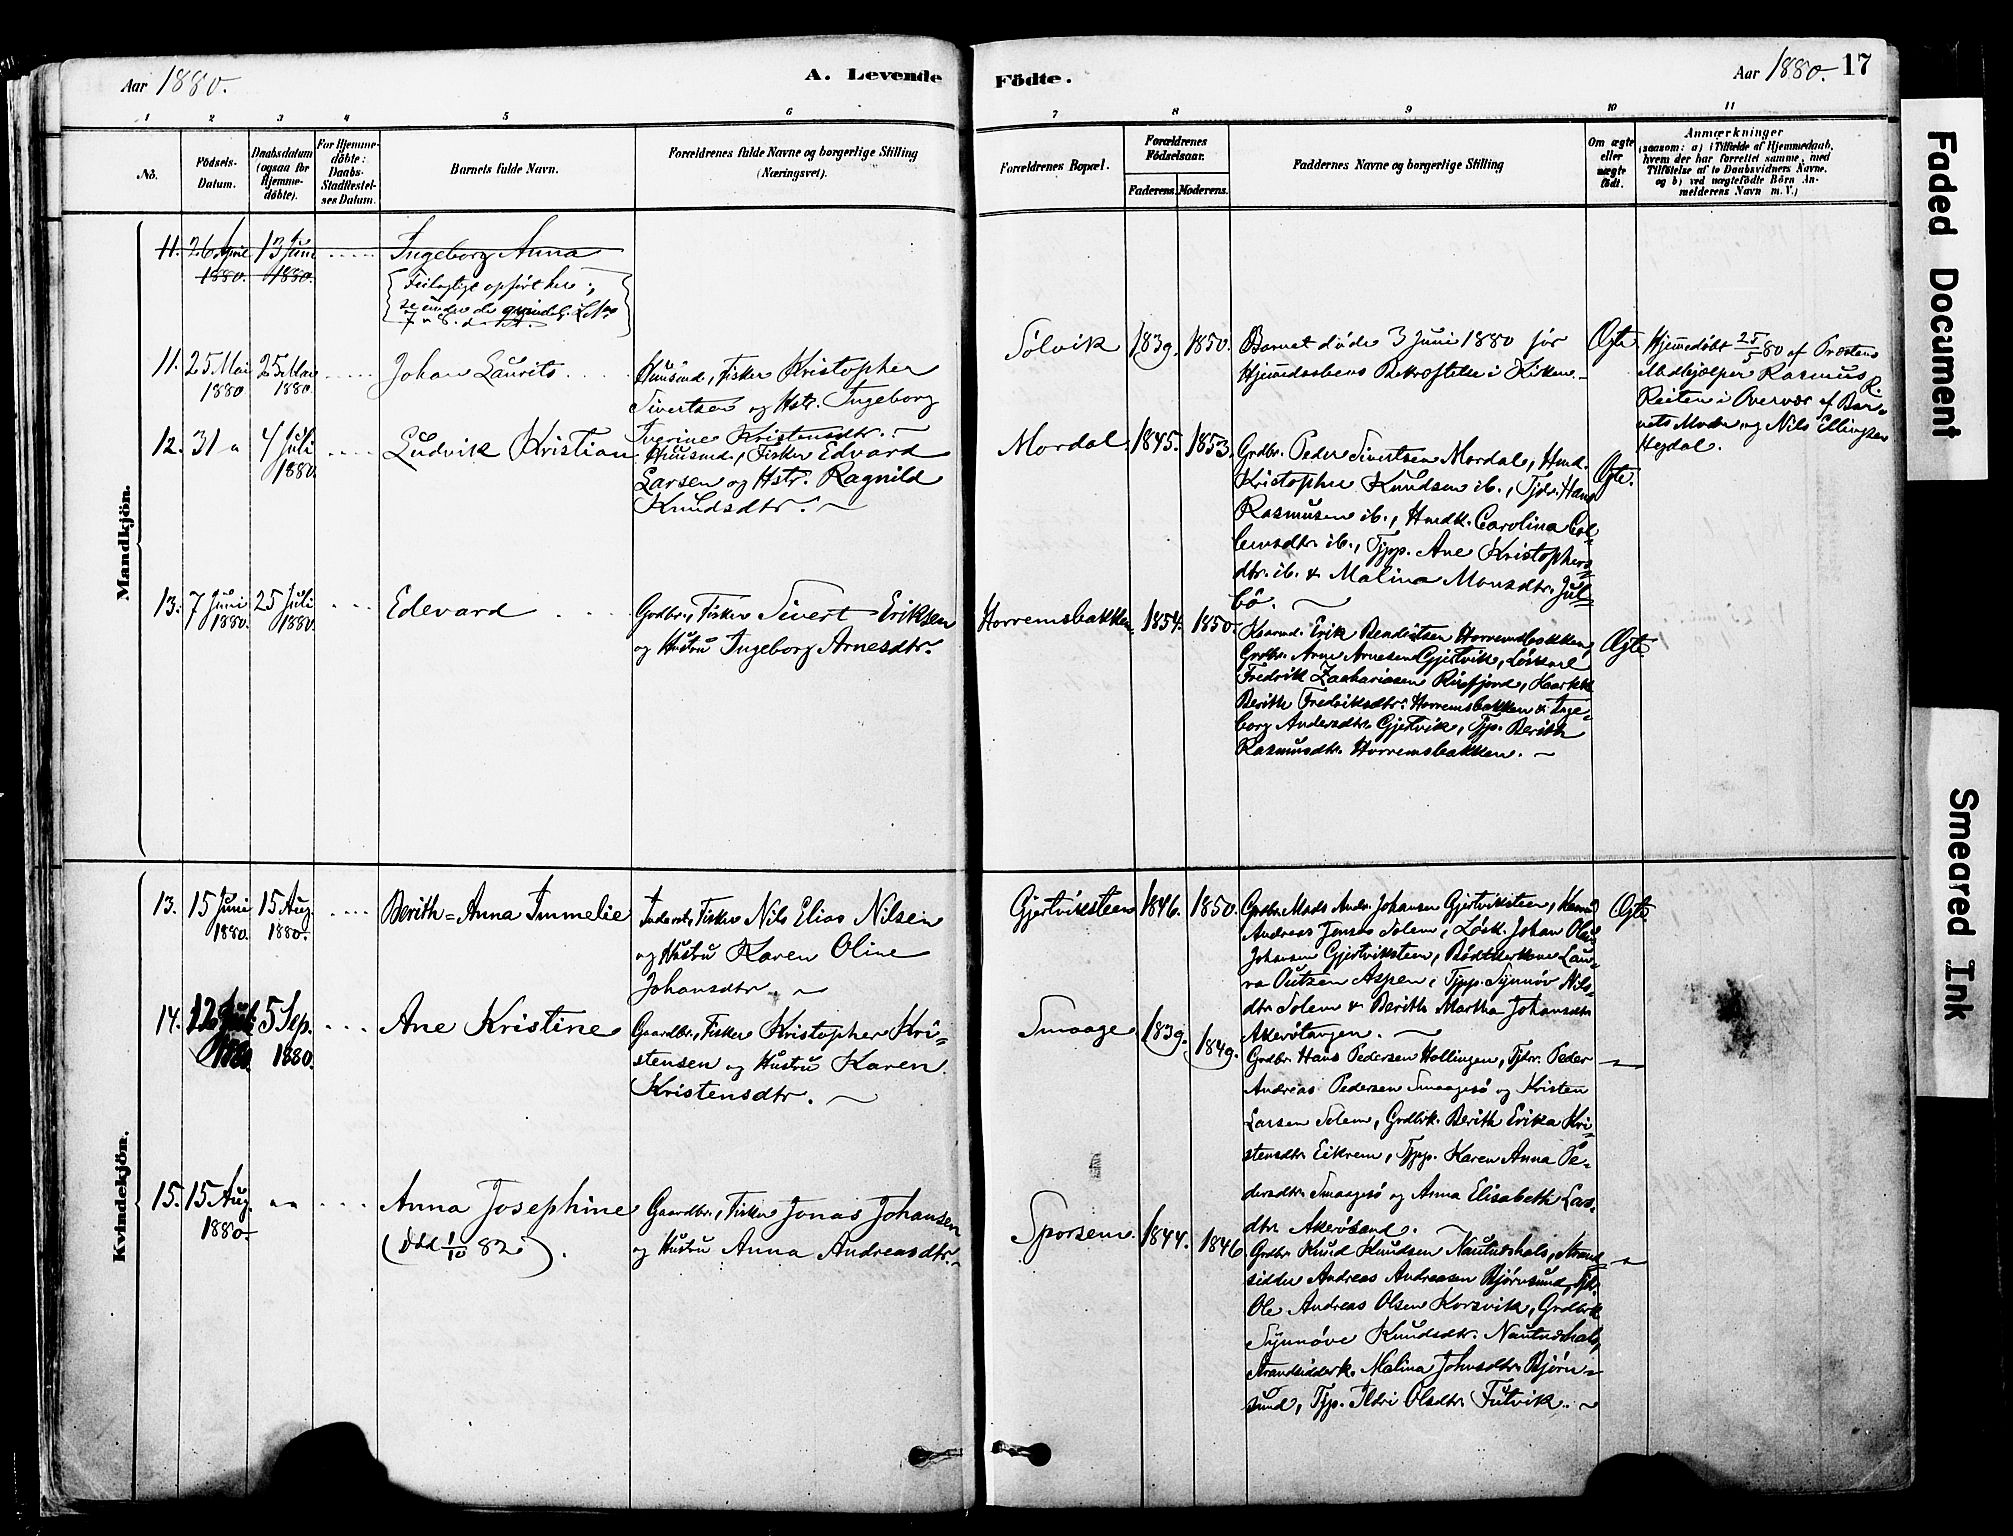 Aar 1880.
A. Levende
Födte.
Aar 1880. 17
1 2 3 4 5 6 7 8 9 10 11
No.
Födsels-
Datum.
Daabsdatum
(ogsaa for
Hjemme-
döbte).
For Hjemme-
döbte:
Daabs-
Stadfæstel-
ses Datum.
Barnets fulde Navn.
Forældrenes fulde Navne og borgerlige Stilling
(Næringsvei).
Forældrenes Bopæl.
Forældrenes
Födselsaar.
Faderens. Moderens.
Faddernes Navne og borgerlige Stilling
Om ægte
eller
uægte
födt.
Anmærkninger
(saasom: a) i Tilfælde af Hjemmedaab,
hvem der har forrettet samme, med
Tilföielse af to Daabsvidners Navne,
og b) ved uægtefödte Börn An-
melderens Navn m. V.)
Mandkjön.
11. 26 April
1880.
13 Juni
1880.
Ingeborg Anna
Feilagtigt opført her;
11. 25 Mai
1880
25 Mai
1880.
Johan Laurits
Huusmd., Fisker Kristopher
Sivertsen og Hstr. Ingeborg
Iverine Kristensdtr.
Sølvik
1839.
1850.
Barnet døde 3 Juni 1880 før
Hjemmedaabens Bekræftelse i Kirken.
Ægte
Hjemmedöbt 25/5 80 af Præstens
Medhjælper Rasmus R.
Reiten i Overvær af Bar-
nets Moder og Nils Ellingsen
Hegdal.
12. 31 "
4 Juli
1880.
Ludvik Kristian
Huusmd., Fisker Edvard
Larsen og Hstr. Ragnild
Knudsdtr.
Mordal
1845.
1853.
Grdbr. Peder Sivertsen Mordal, Hmd.
Kristopher Knudsen ib., Tjdr. Hans
Rasmusen ib., Hmdk. Carolina
ib., Tjpp. Ane Kristophers-
dtr. ib. & Malina Monsdtr. Jul-
bö.
Ægte.
13. 7 Juni
1880.
25 Juli
1880.
Edevard
Gardbr., Fisker Sivert Eriksen
og Hustru Ingeborg Arnesdtr.
Horremsbakken.
1854.
1850.
Erik Bendiktsen Horremsbakken,
Grdbr. Arne Arnesen Gjertvik, Løskarl
Fredrik Zachariasen
Berith Fredriksdtr. Horremsbakken & Inge-
borg Andersdtr. Gjertvik, Tjp. Berith
Rasmusdtr. Horremsbakken.
Ægte.
Kvindekjön.
13. 15 Juni
1880.
15 Aug.
1880.
Berith=Anna Immelie
Inderst, Fisker Nils Elias Nilsen
og Hustru Karen Oline
Johansdtr
Gjertviksteen
1846.
1850.
Grdbr. Mads Andr. Johansen Gjertviksteen,
Andreas Jonsen Solem, Løsk. Johan
Johansen Gjertviksteen, Bödkerkone Lau-
ra Outzen Aspen, Tjpp. Synnöv Nils-
dtr Solem & Berith Martha Johansdtr
Akerötangen.
Ægte.
14. 12
1880.
5 Sep.
1880.
Ane Kristine
Gaardbr., Fisker Kristopher Kri-
stensen og Hustru Karen
Kristensdtr.
Smaage
1839.
1849.
Grdbr. Hans Pedersen Hollingen, Tjdr. Peder
Andreas Pedersen Smaagesö og Kristen
Larsen Solem, Grdbrk. Berith Erika Kri-
stensdtr. Eikrem, Tjpp. Karen Anna Pe-
dersdtr. Smaagesö og Anna Elisabeth Lars-
dtr Akerösand.
15. 15 Aug.
1880.
" "
Anna Josephine
(Död 1/10 82).
Gaardbr., Fisker Jonas Johansen
og Hustru Anna Andreasdtr.
Sporsem
1844.
1846
Grdbr. Knud Knudsen Nautneshals, Strand-
sidder Andreas Andreasen Bjørnsund, Tjdr.
Ole Andreas Olsen Korsvik, Grdbrk
Synnöve Knudsdtr. Nautneshals,
Strandsidderk. Malina Johnsdtr. Bjørn-
sund, Tjp. Ildri Olsdtr.
Faded Document
Smeared Ink